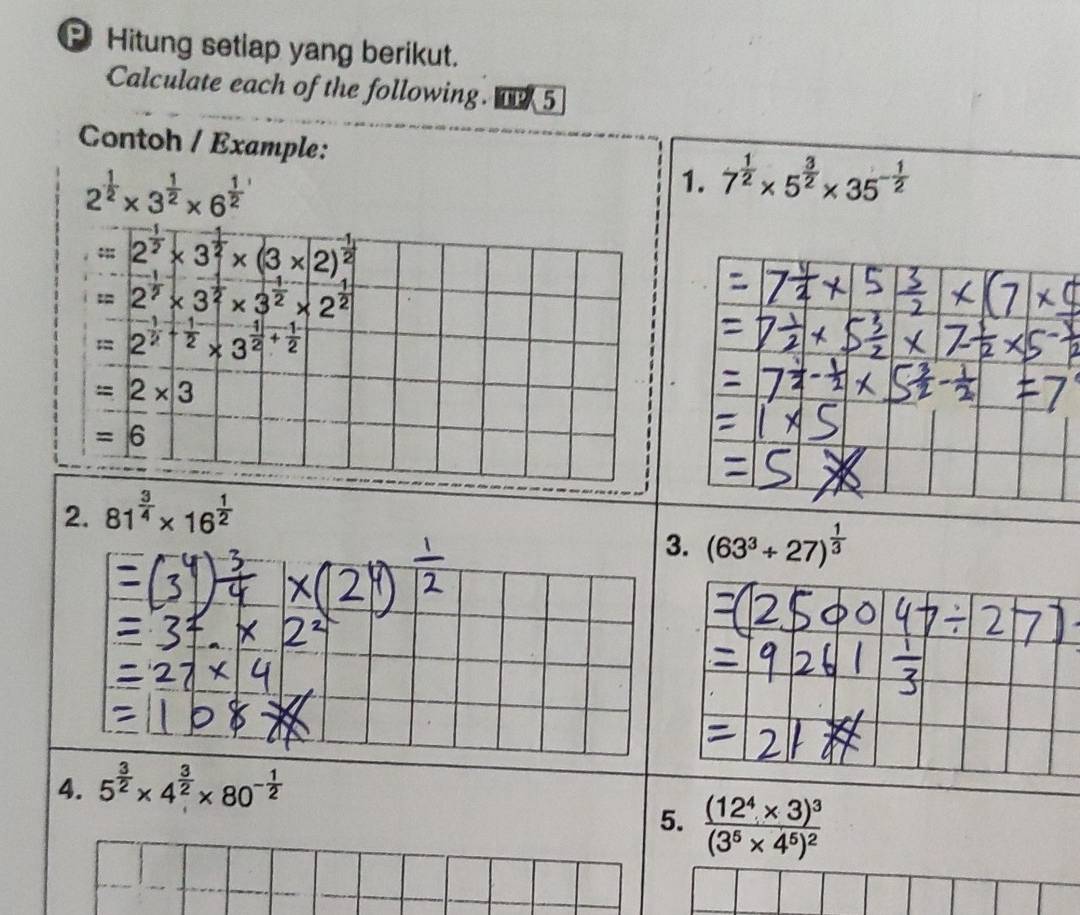 P Hitung setiap yang berikut.
Calculate each of the following. TP 5
Contoh / Example:
2^{1/2} × 3^{1/2} × 6^{1/2}
= 2^{1/2} × 3^{1/2} × (3 × 2)^{1/2}
= 2^{1/2} × 3^{1/2} × 3^{1/2} × 2^{1/2}
= 2^{1/2 + 1/2} × 3^{1/2 + 1/2}
= 2 × 3
= 6
1. 7^{1/2} × 5^{3/2} × 35^{-1/2}
= 7^{1/2} × 5^{3/2} × (7 ×
= 7^{1/2} × 5^{3/2} × 7^{-1/2} × 5^{-1/2}
= 7^{1/2 - 1/2} × 5^{3/2 - 1/2} = 7
= 1 × 5
= 5
2. 81^{3/4} × 16^{1/2}
= (3^4)^{3/4} × (2^4)^{1/2}
= 3 × 2²
= 27 × 4
= 108
3. (63³ ÷ 27)^{1/3}
= (250047 ÷ 27)
= 9261^{1/3}
= 21
4. 5^{3/2} × 4^{3/2} × 80^{-1/2}
5. (12⁴ × 3)³ / (3⁵ × 4⁵)²